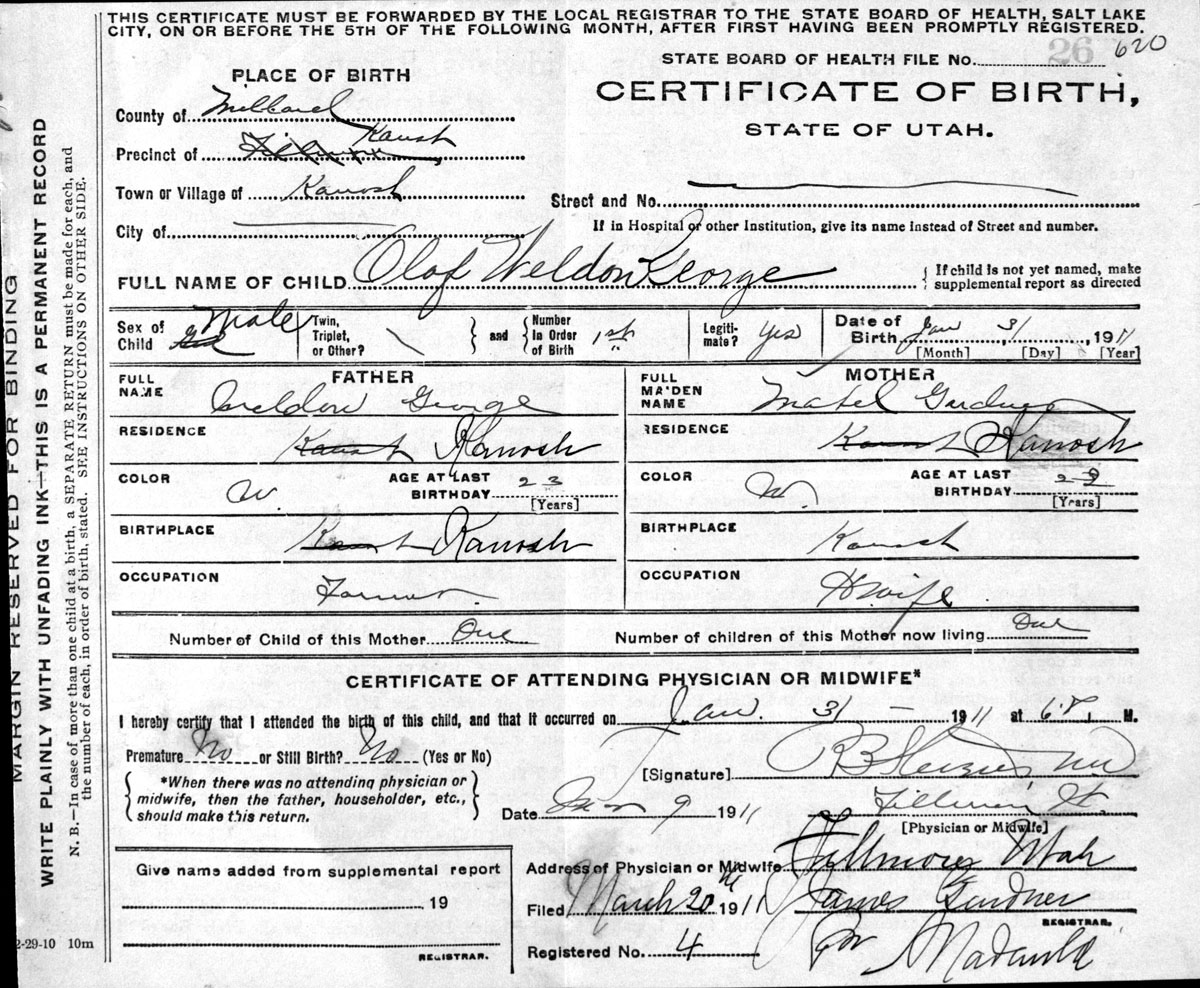 THIS CERTIFICATE MUST BE FORWARDED BY THE LOCAL REGISTRAR TO THE STATE BOARD OF HEALTH, SALT LAKE
CITY, ON OR BEFORE THE 5TH OF THE FOLLOWING MONTH, AFTER FIRST HAVING BEEN PROMPTLY REGISTERED.
26 620
STATE BOARD OF HEALTH FILE No.
CERTIFICATE OF BIRTH,
STATE OF UTAH.
PLACE OF BIRTH
County of Millard
Precinct of Fillmore Kanosh
Town or Village of Kanosh
Street and No.
City of
If in Hospital or other Institution, give its name instead of Street and number.
FULL NAME OF CHILD Olof Weldon George
If child is not yet named, make
supplemental report as directed
Sex of Child Male
Twin, Triplet, or Other?
and Number in Order of Birth 1st
Legitimate? Yes
Date of Birth Jan 31, 1911
[Month] [Day] [Year]
FATHER
FULL NAME Weldon George
RESIDENCE Kanosh Kanosh
COLOR W.
AGE AT LAST BIRTHDAY 23
[Years]
BIRTHPLACE Kanosh Kanosh
OCCUPATION Farmer.
MOTHER
FULL MAIDEN NAME Mabel Gardner
RESIDENCE Kanosh Kanosh
COLOR W.
AGE AT LAST BIRTHDAY
[Years]
BIRTHPLACE Kanosh
OCCUPATION H wife.
Number of Child of this Mother One
Number of children of this Mother now living One
CERTIFICATE OF ATTENDING PHYSICIAN OR MIDWIFE*
I hereby certify that I attended the birth of this child, and that it occurred on Jan. 31 — 1911 at 6 P. M.
Premature No or Still Birth? No (Yes or No)
*When there was no attending physician or
midwife, then the father, householder, etc.,
should make this return.
[Signature]
Date 9 1911
[Physician or Midwife]
Address of Physician or Midwife Fillmore Utah
Filed March 20th 1911 James Gardner
REGISTRAR.
Registered No. 4 Per
Give name added from supplemental report
19
REGISTRAR.
MARGIN RESERVED FOR BINDING
WRITE PLAINLY WITH UNFADING INK—THIS IS A PERMANENT RECORD
N. B.—In case of more than one child at a birth, a SEPARATE RETURN must be made for each, and
the number of each, in order of birth, stated. SEE INSTRUCTIONS ON OTHER SIDE.
2-29-10 10m